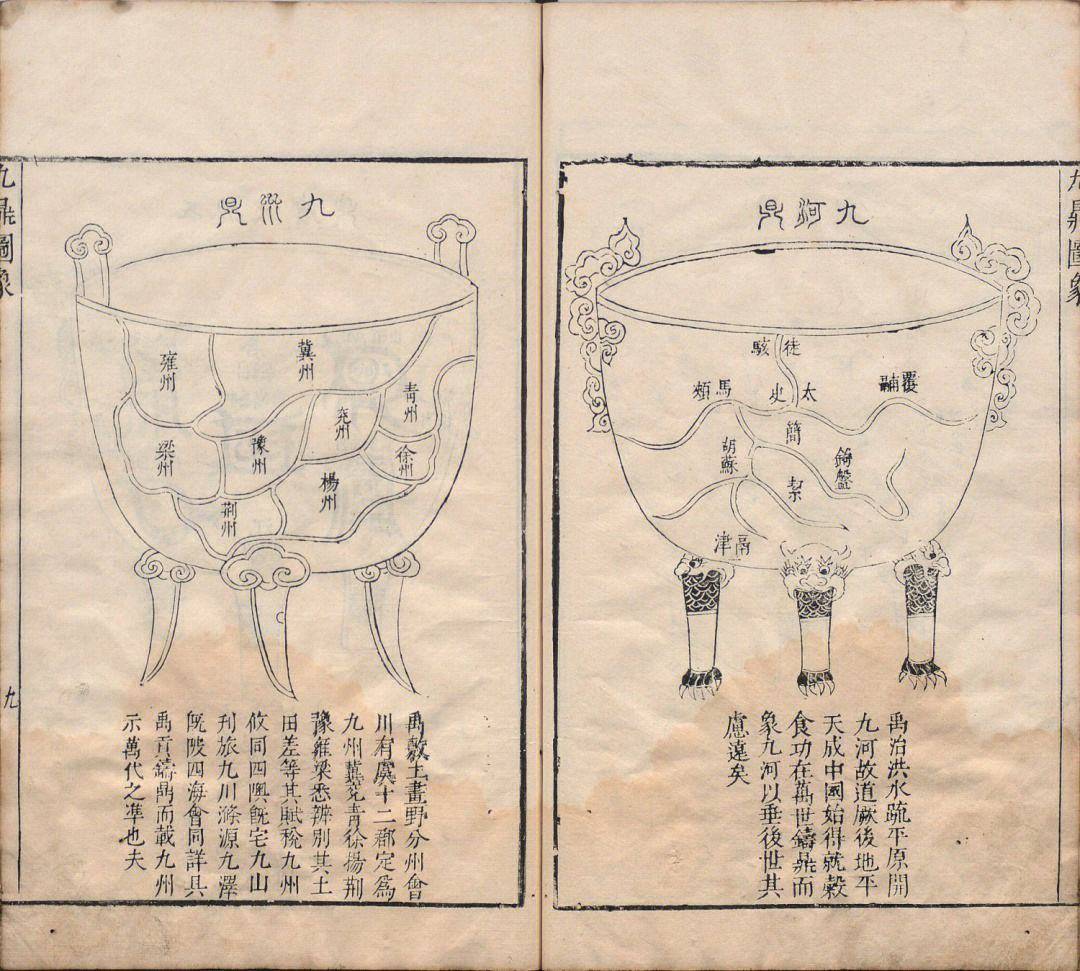 九鼎圖象
九河鼎
徒駭
太史
馬頰
覆鬴
胡蘇
簡
絜
錡盤
鬲津
禹治洪水疏平原開
九河故道厥後地平
天成中國始得就穀
食功在萬世鑄鼎而
象九河以垂後世其
慮遠矣
九州鼎
冀州
雍州
青州
兖州
徐州
豫州
梁州
楊州
荆州
禹敷土畫野分州會
川有虞十二郡定爲
九州冀兖青徐揚荆
豫雍梁悉辨別其土
田差等其賦稅九州
攸同四隩旣宅九山
刋旅九川滌源九澤
旣陂四海會同詳具
禹貢鑄鼎而載九州
示萬代之凖也夫
九鼎圖象
九